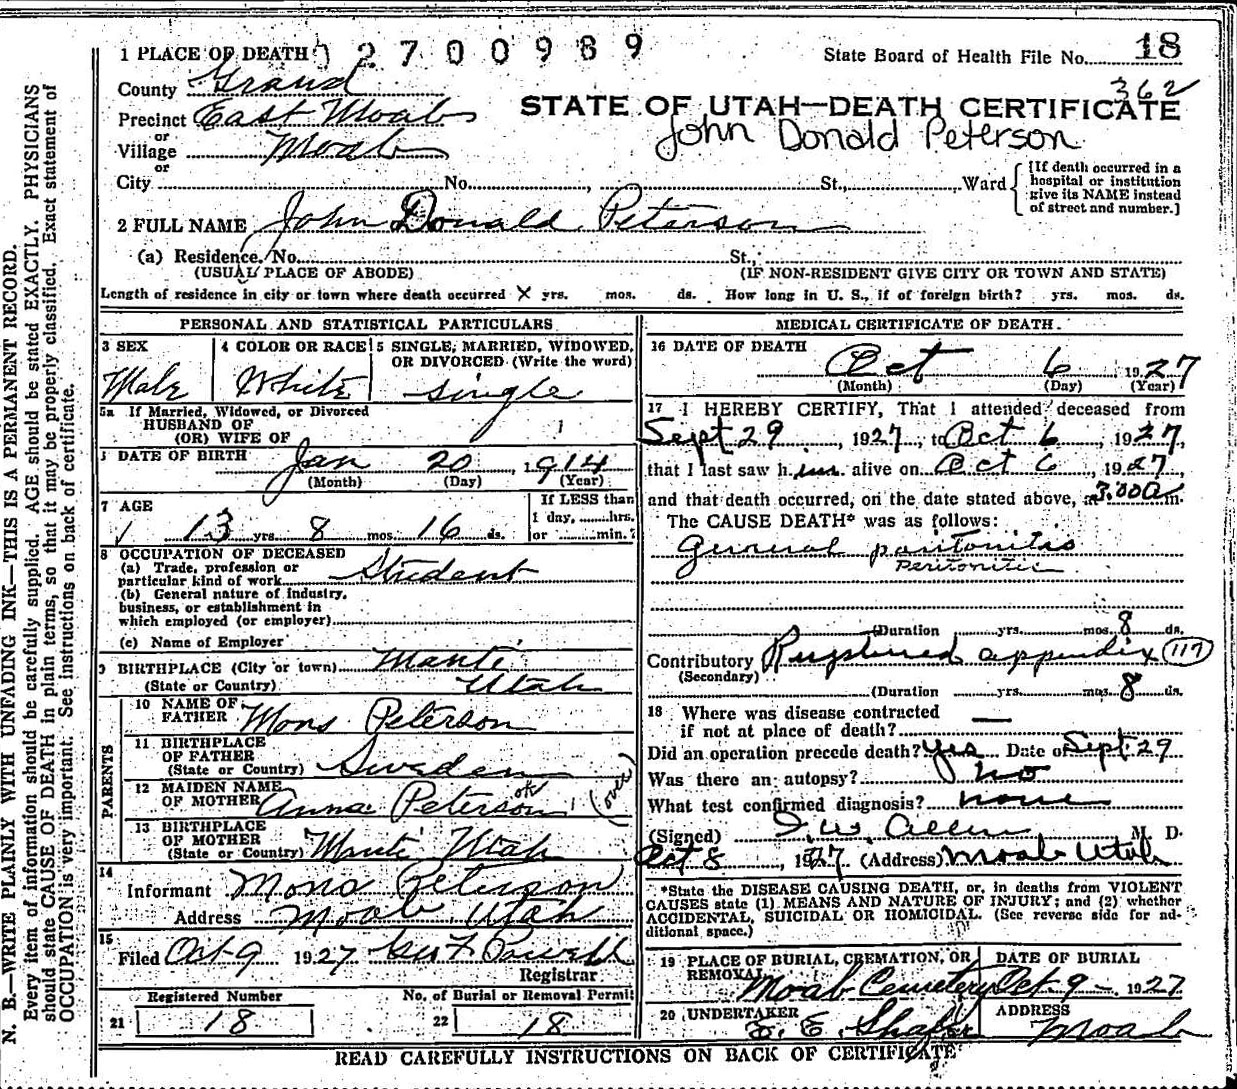 1 PLACE OF DEATH 2700989
State Board of Health File No. 18
County Grand
362
Precinct East Moab
STATE OF UTAH—DEATH CERTIFICATE
or
Village Moab
John Donald Peterson
or
City No. , St., Ward {[If death occurred in a
hospital or institution
give its NAME instead
of street and number.]
2 FULL NAME John Donald Peterson
(a) Residence. No. St.,
(USUAL PLACE OF ABODE) (IF NON-RESIDENT GIVE CITY OR TOWN AND STATE)
Length of residence in city or town where death occurred X yrs. mos. ds. How long in U. S., if of foreign birth? yrs. mos. ds.
PERSONAL AND STATISTICAL PARTICULARS
3 SEX
Male
4 COLOR OR RACE
White
5 SINGLE, MARRIED, WIDOWED,
OR DIVORCED (Write the word)
single
5a If Married, Widowed, or Divorced
HUSBAND OF
(OR) WIFE OF
DATE OF BIRTH Jan 20, 1914
(Month) (Day) (Year)
7 AGE
13 yrs. 8 mos. 16 ds.
If LESS than
1 day, hrs.
or min.?
8 OCCUPATION OF DECEASED
(a) Trade, profession or
particular kind of work Student
(b) General nature of industry,
business, or establishment in
which employed (or employer)
(c) Name of Employer
9 BIRTHPLACE (City or town) Manti
(State or Country) Utah
PARENTS
10 NAME OF
FATHER Mons Peterson
11 BIRTHPLACE
OF FATHER
(State or Country) Sweden
12 MAIDEN NAME
OF MOTHER Anna Peterson ok (over)
13 BIRTHPLACE
OF MOTHER
(State or Country) Manti Utah
14
Informant Mons Peterson
Address Moab, Utah
15
Filed Oct-9 1927 Powell
Registrar
Registered Number
21 18
No. of Burial or Removal Permit
22 18
MEDICAL CERTIFICATE OF DEATH.
16 DATE OF DEATH
Oct 6 1927
(Month) (Day) (Year)
17 I HEREBY CERTIFY, That I attended deceased from
Sept 29, 1927, to Oct 6, 1927,
that I last saw him alive on Oct 6, 1927,
and that death occurred, on the date stated above, at 3.00 a m.
The CAUSE DEATH* was as follows:
general paritonitas
Peritonitis
(Duration yrs. mos. 8 ds.
Contributory Ruptured appendix 117
(Secondary)
(Duration yrs. mos. 8 ds.
18 Where was disease contracted
if not at place of death? —
Did an operation precede death? yes Date of Sept 29
Was there an autopsy? no
What test confirmed diagnosis? none
(Signed) I. W. Allen, M. D.
Oct 8, 1927 (Address) Moab Utah
*State the DISEASE CAUSING DEATH, or, in deaths from VIOLENT
CAUSES state (1) MEANS AND NATURE OF INJURY; and (2) whether
ACCIDENTAL, SUICIDAL OR HOMICIDAL. (See reverse side for ad-
ditional space.)
19 PLACE OF BURIAL, CREMATION, OR
REMOVAL
Moab Cemetery
DATE OF BURIAL
Oct-9- 1927
20 UNDERTAKER
E. E. Shafer
ADDRESS
Moab
READ CAREFULLY INSTRUCTIONS ON BACK OF CERTIFICATE
N. B.—WRITE PLAINLY WITH UNFADING INK—THIS IS A PERMANENT RECORD.
Every item of information should be carefully supplied. AGE should be stated EXACTLY. PHYSICIANS
should state CAUSE OF DEATH in plain terms, so that it may be properly classified. Exact statement of
OCCUPATION is very important. See instructions on back of certificate.